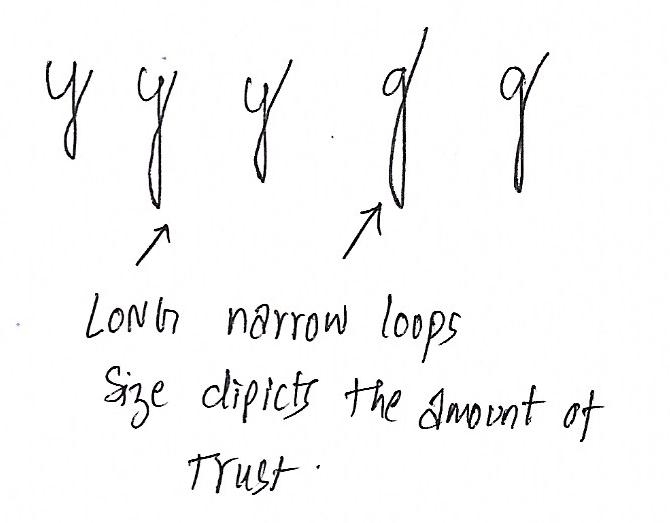 y y y g g
LONG narrow loops
Size dipicts the amount of
Trust.